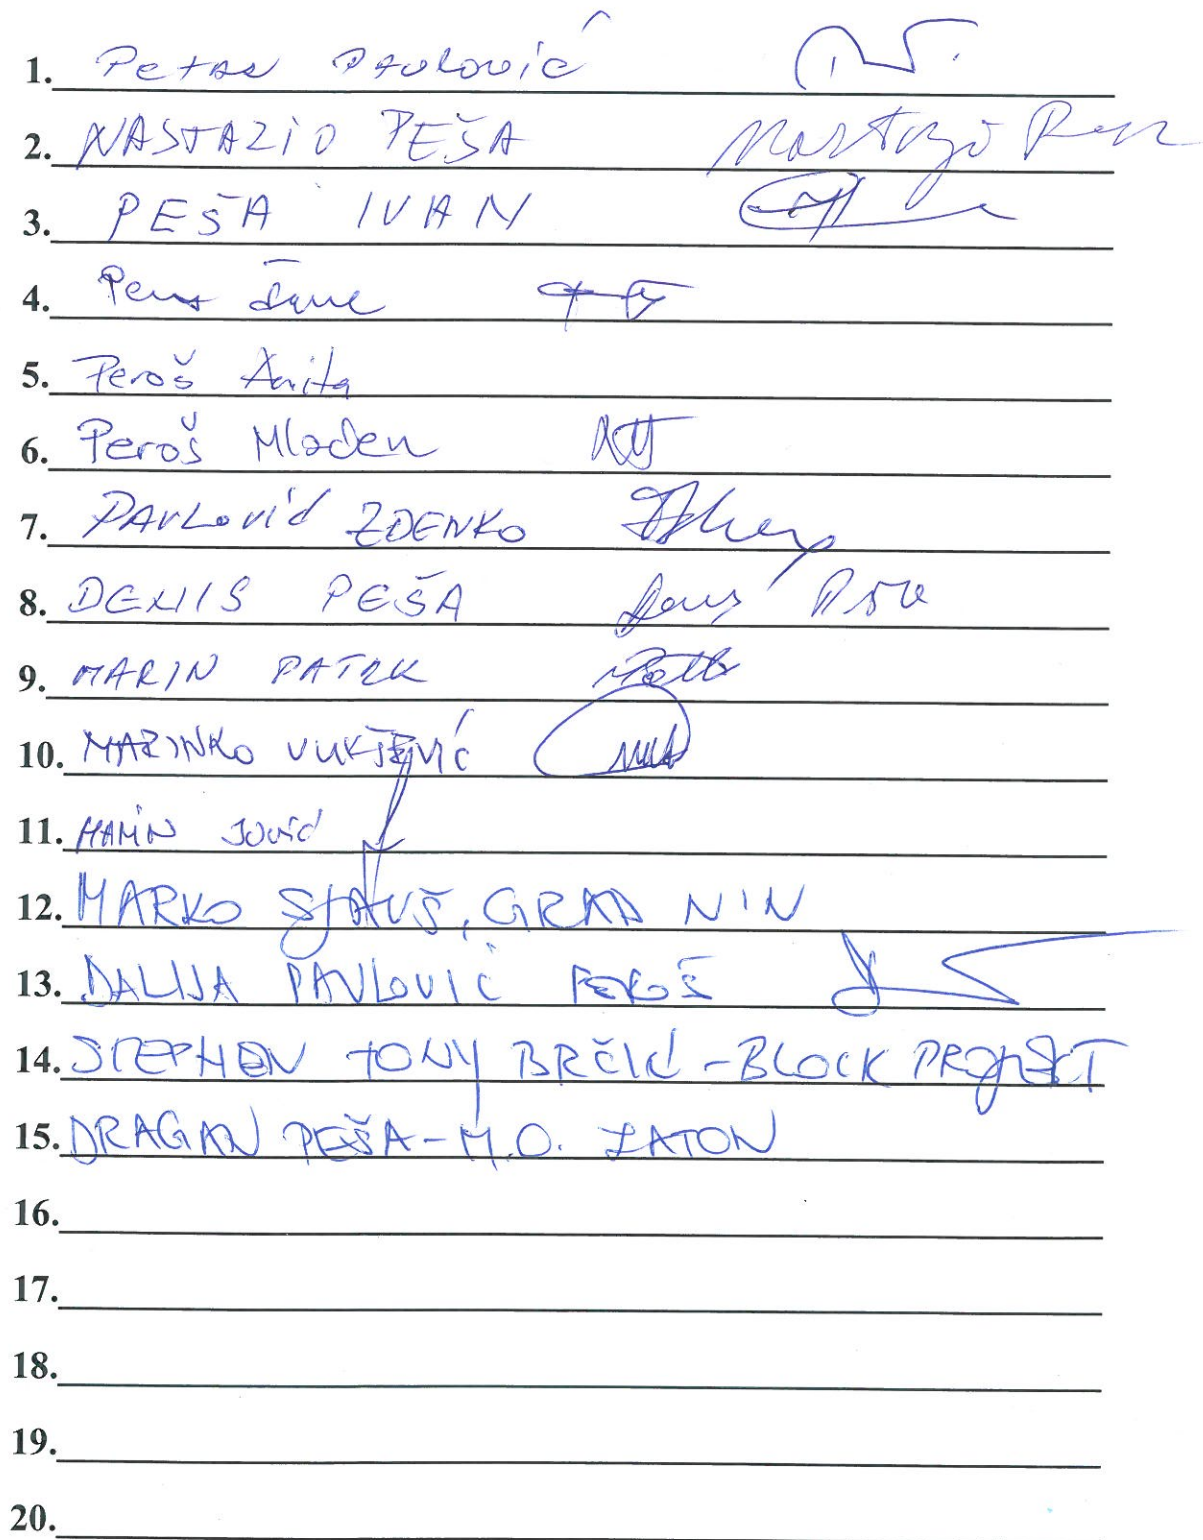 1. Petar Pavlović
2. NASTAZIO PEŠA
3. PEŠA IVAN
4.
5. Peroš Anita
6. Peroš Mladen
7. PAVLOVIĆ ZDENKO
8. DENIS PEŠA
9. MARIN PATRK
10. MARINKO
11. JOVIĆ
12. MARKO STAUŠ, GRAD NIN
13. DALIJA PAVLOVIĆ PEROŠ
14. STEPHEN TONY BRČIĆ - BLOCK PROJEKT
15. DRAGAN PEŠA - M.O. ZATON
16.
17.
18.
19.
20.